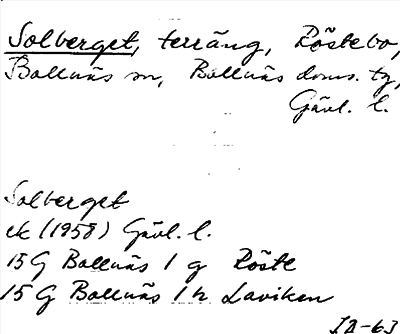 Solberget, terräng, Röstebo,
Bollnäs sn, Bollnäs doms. tg,
Gävl. l.
Solberget
ek (1958) Gävl. l.
15 G Bollnäs 1 g Röste
15 G Bollnäs 1 h Laviken
IA-63